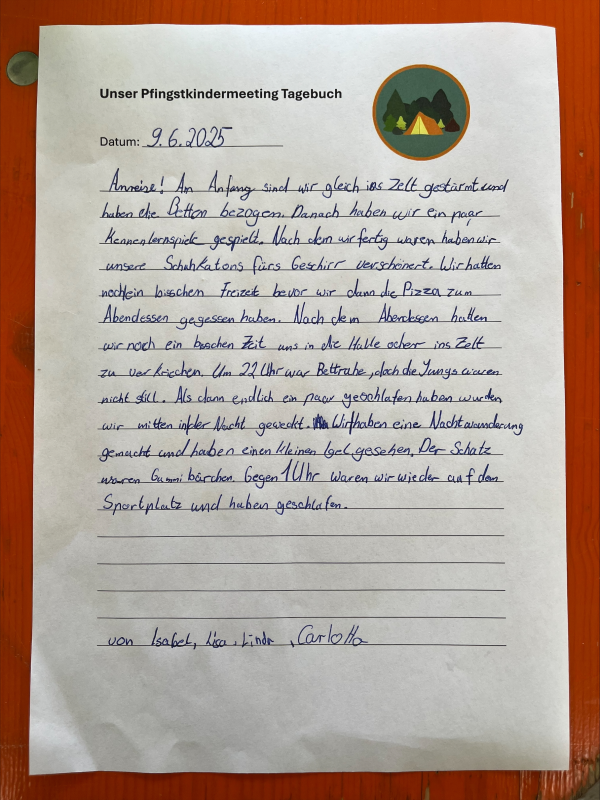 Unser Pfingstkindermeeting Tagebuch
Datum: 9.6.2025
Anreise! Am Anfang sind wir gleich ins Zelt gestürmt und
haben die Betten bezogen. Danach haben wir ein paar
Kennenlernspiele gespielt. Nach dem wir fertig waren haben wir
unsere Schuhkatons fürs Geschirr verschönert. Wir hatten
noch ein bisschen Freizeit bevor wir dann die Pizza zum
Abendessen gegessen haben. Nach dem Abendessen hatten
wir noch ein bisschen Zeit uns in die Halle oder ins Zelt
zu verkriechen. Um 22 Uhr war Bettruhe, doch die Jungs waren
nicht still. Als dann endlich ein paar geschlafen haben wurden
wir mitten in der Nacht geweckt. Wir haben eine Nachtwanderung
gemacht und haben einen kleinen Igel gesehen. Der Schatz
waren Gummibärchen. Gegen 1 Uhr waren wir wieder auf dem
Sportplatz und haben geschlafen.
von Isabel, Lisa, Linda, Carlotta